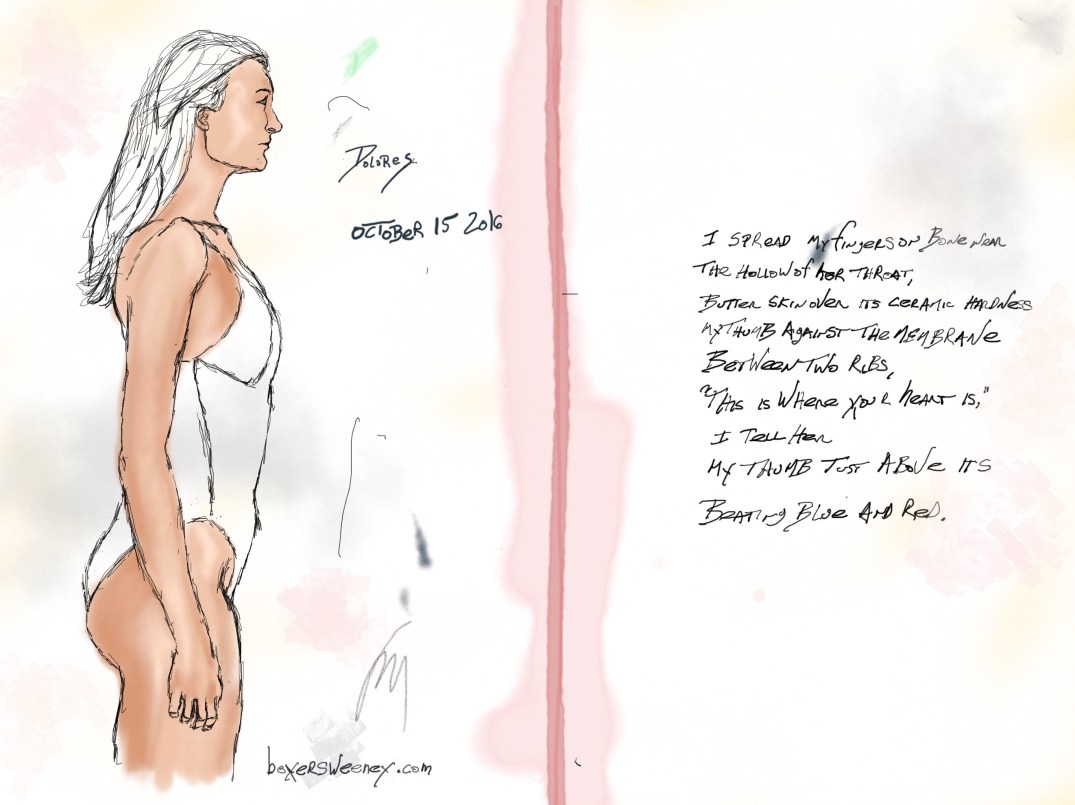 Dolores
OCTOBER 15 2016
I SPREAD My fingers on Bone near
THE Hollow of her THROAT,
BUTTER SKIN over ITS CERAMIC HARDNESS
My THUMB AgaINST THE MEMBRANE
BETWEEN TWO RIBS,
"THIS IS WHere YOUR heart IS,"
I TELL Her
My THUMB JUST ABOVE ITS
BEATINg Blue AND ReD.
boxersweeney.com